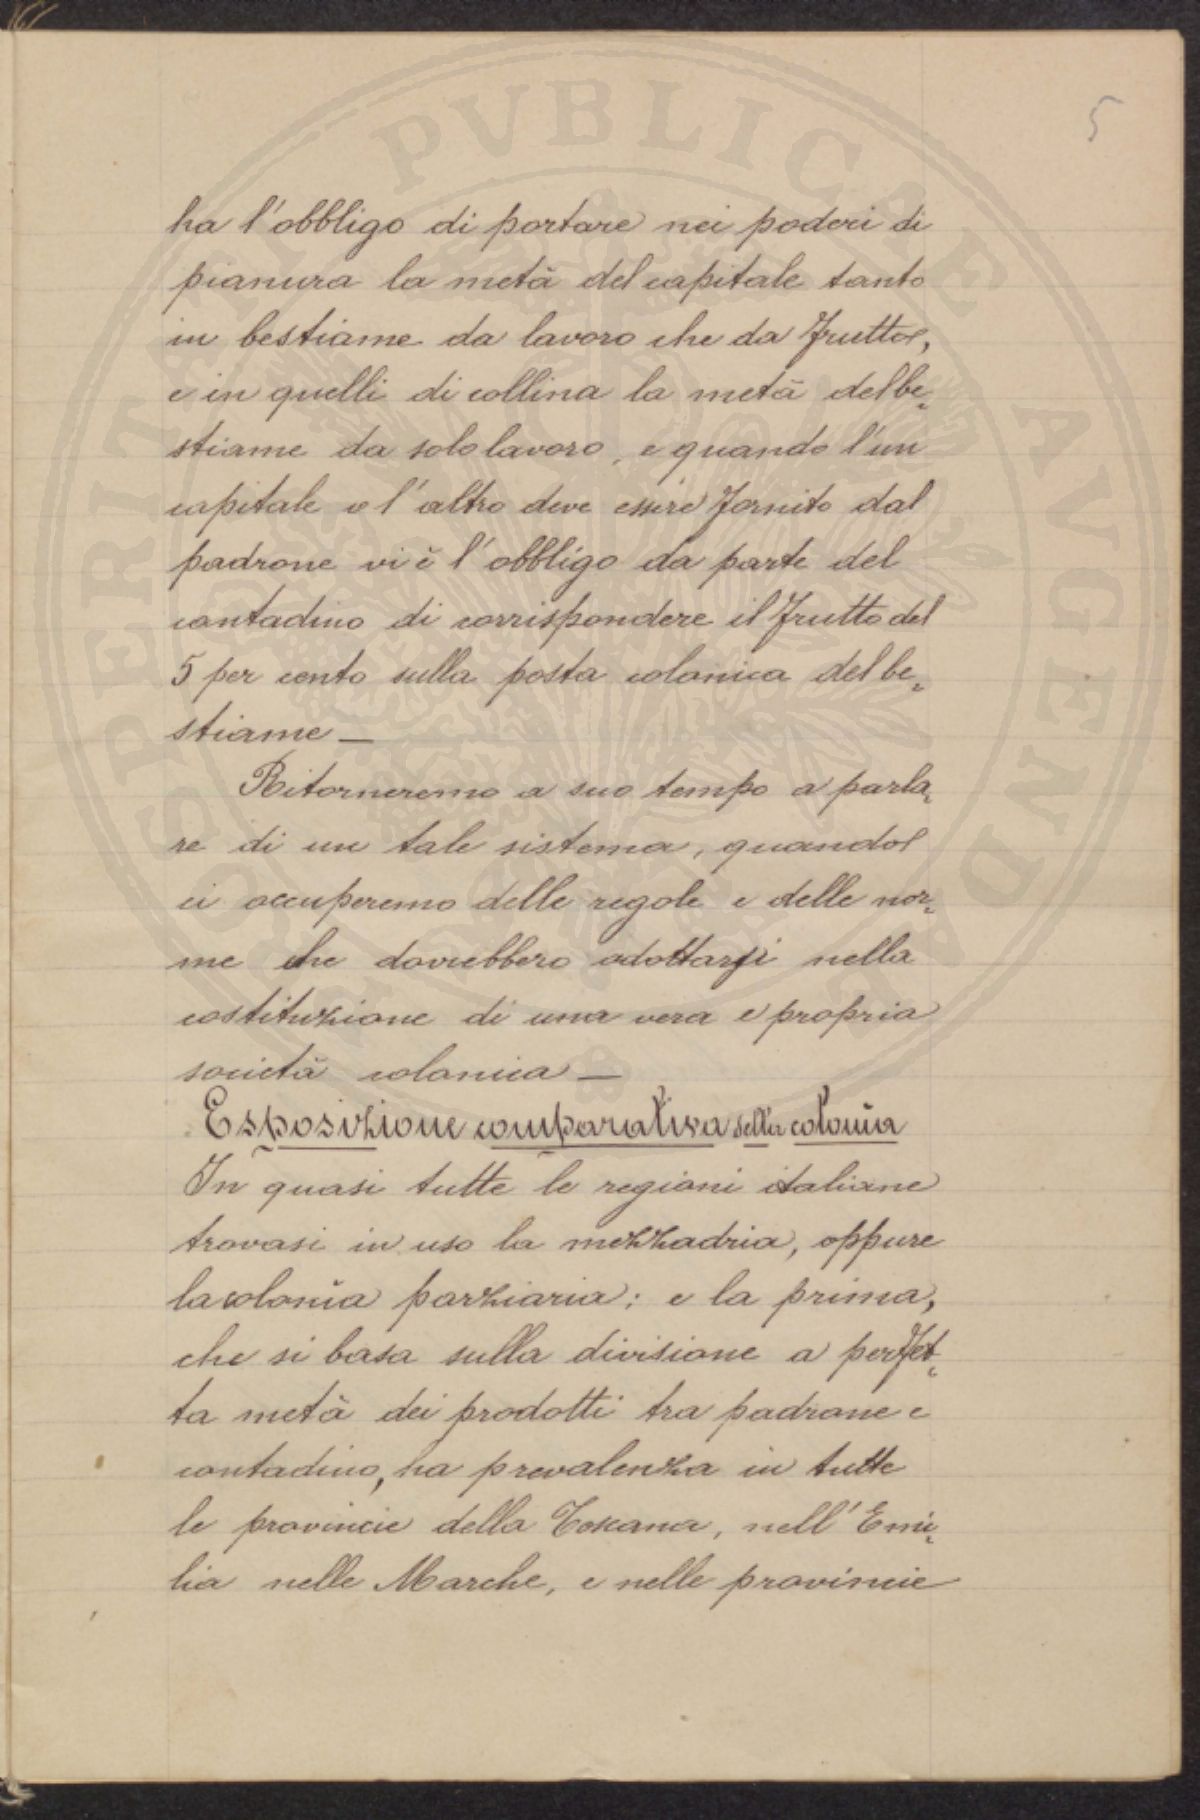 5
ha l'obbligo di portare nei poderi di
pianura la metà del capitale tanto
in bestiame da lavoro che da frutto,
e in quelli di collina la metà del be=
stiame da solo lavoro, e quando l'un
capitale o l'altro deve essere fornito dal
padrone vi è l'obbligo da parte del
contadino di corrispondere il frutto del
5 per cento sulla posta colonica del be=
stiame —
Ritorneremo a suo tempo a parla=
re di un tale sistema, quando
ci occuperemo delle regole e delle nor=
me che dovrebbero adottarsi nella
costituzione di una vera e propria
società colonica —
Esposizione comparativa della colonìa
In quasi tutte le regioni italiane
trovasi in uso la mezzadria, oppure
la colonìa parziaria: e la prima,
che si basa sulla divisione a perfet=
ta metà dei prodotti tra padrone e
contadino, ha prevalenza in tutte
le provincie della Toscana, nell'Emi=
lia nelle Marche, e nelle provincie
PROSPERITATI PVBLICAE AVGENDAE